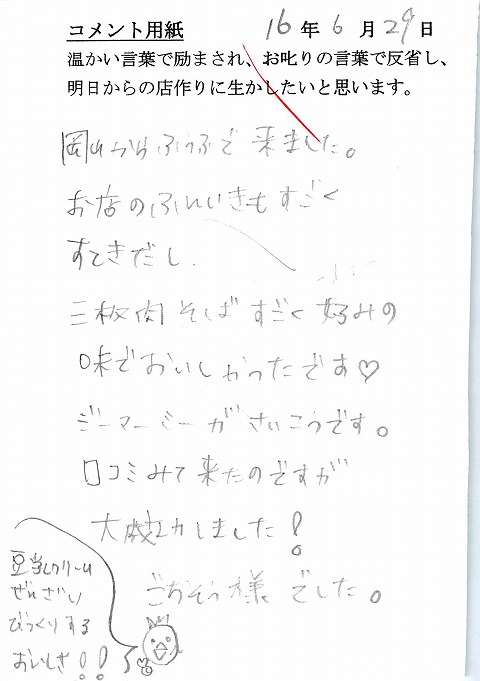 コメント用紙
16年6月29日
温かい言葉で励まされ、お叱りの言葉で反省し、
明日からの店作りに生かしたいと思います。
岡山からふうふで来ました。
お店のふんいきもすごく
すてきだし、
三枚肉そばすごく好みの
味でおいしかったです♡
ジーマーミーがさいこうです。
口コミみて来たのですが
大成功しました!
ごちそう様でした。
豆乳クリーム
ぜんざい
びっくりする
おいしさ!!